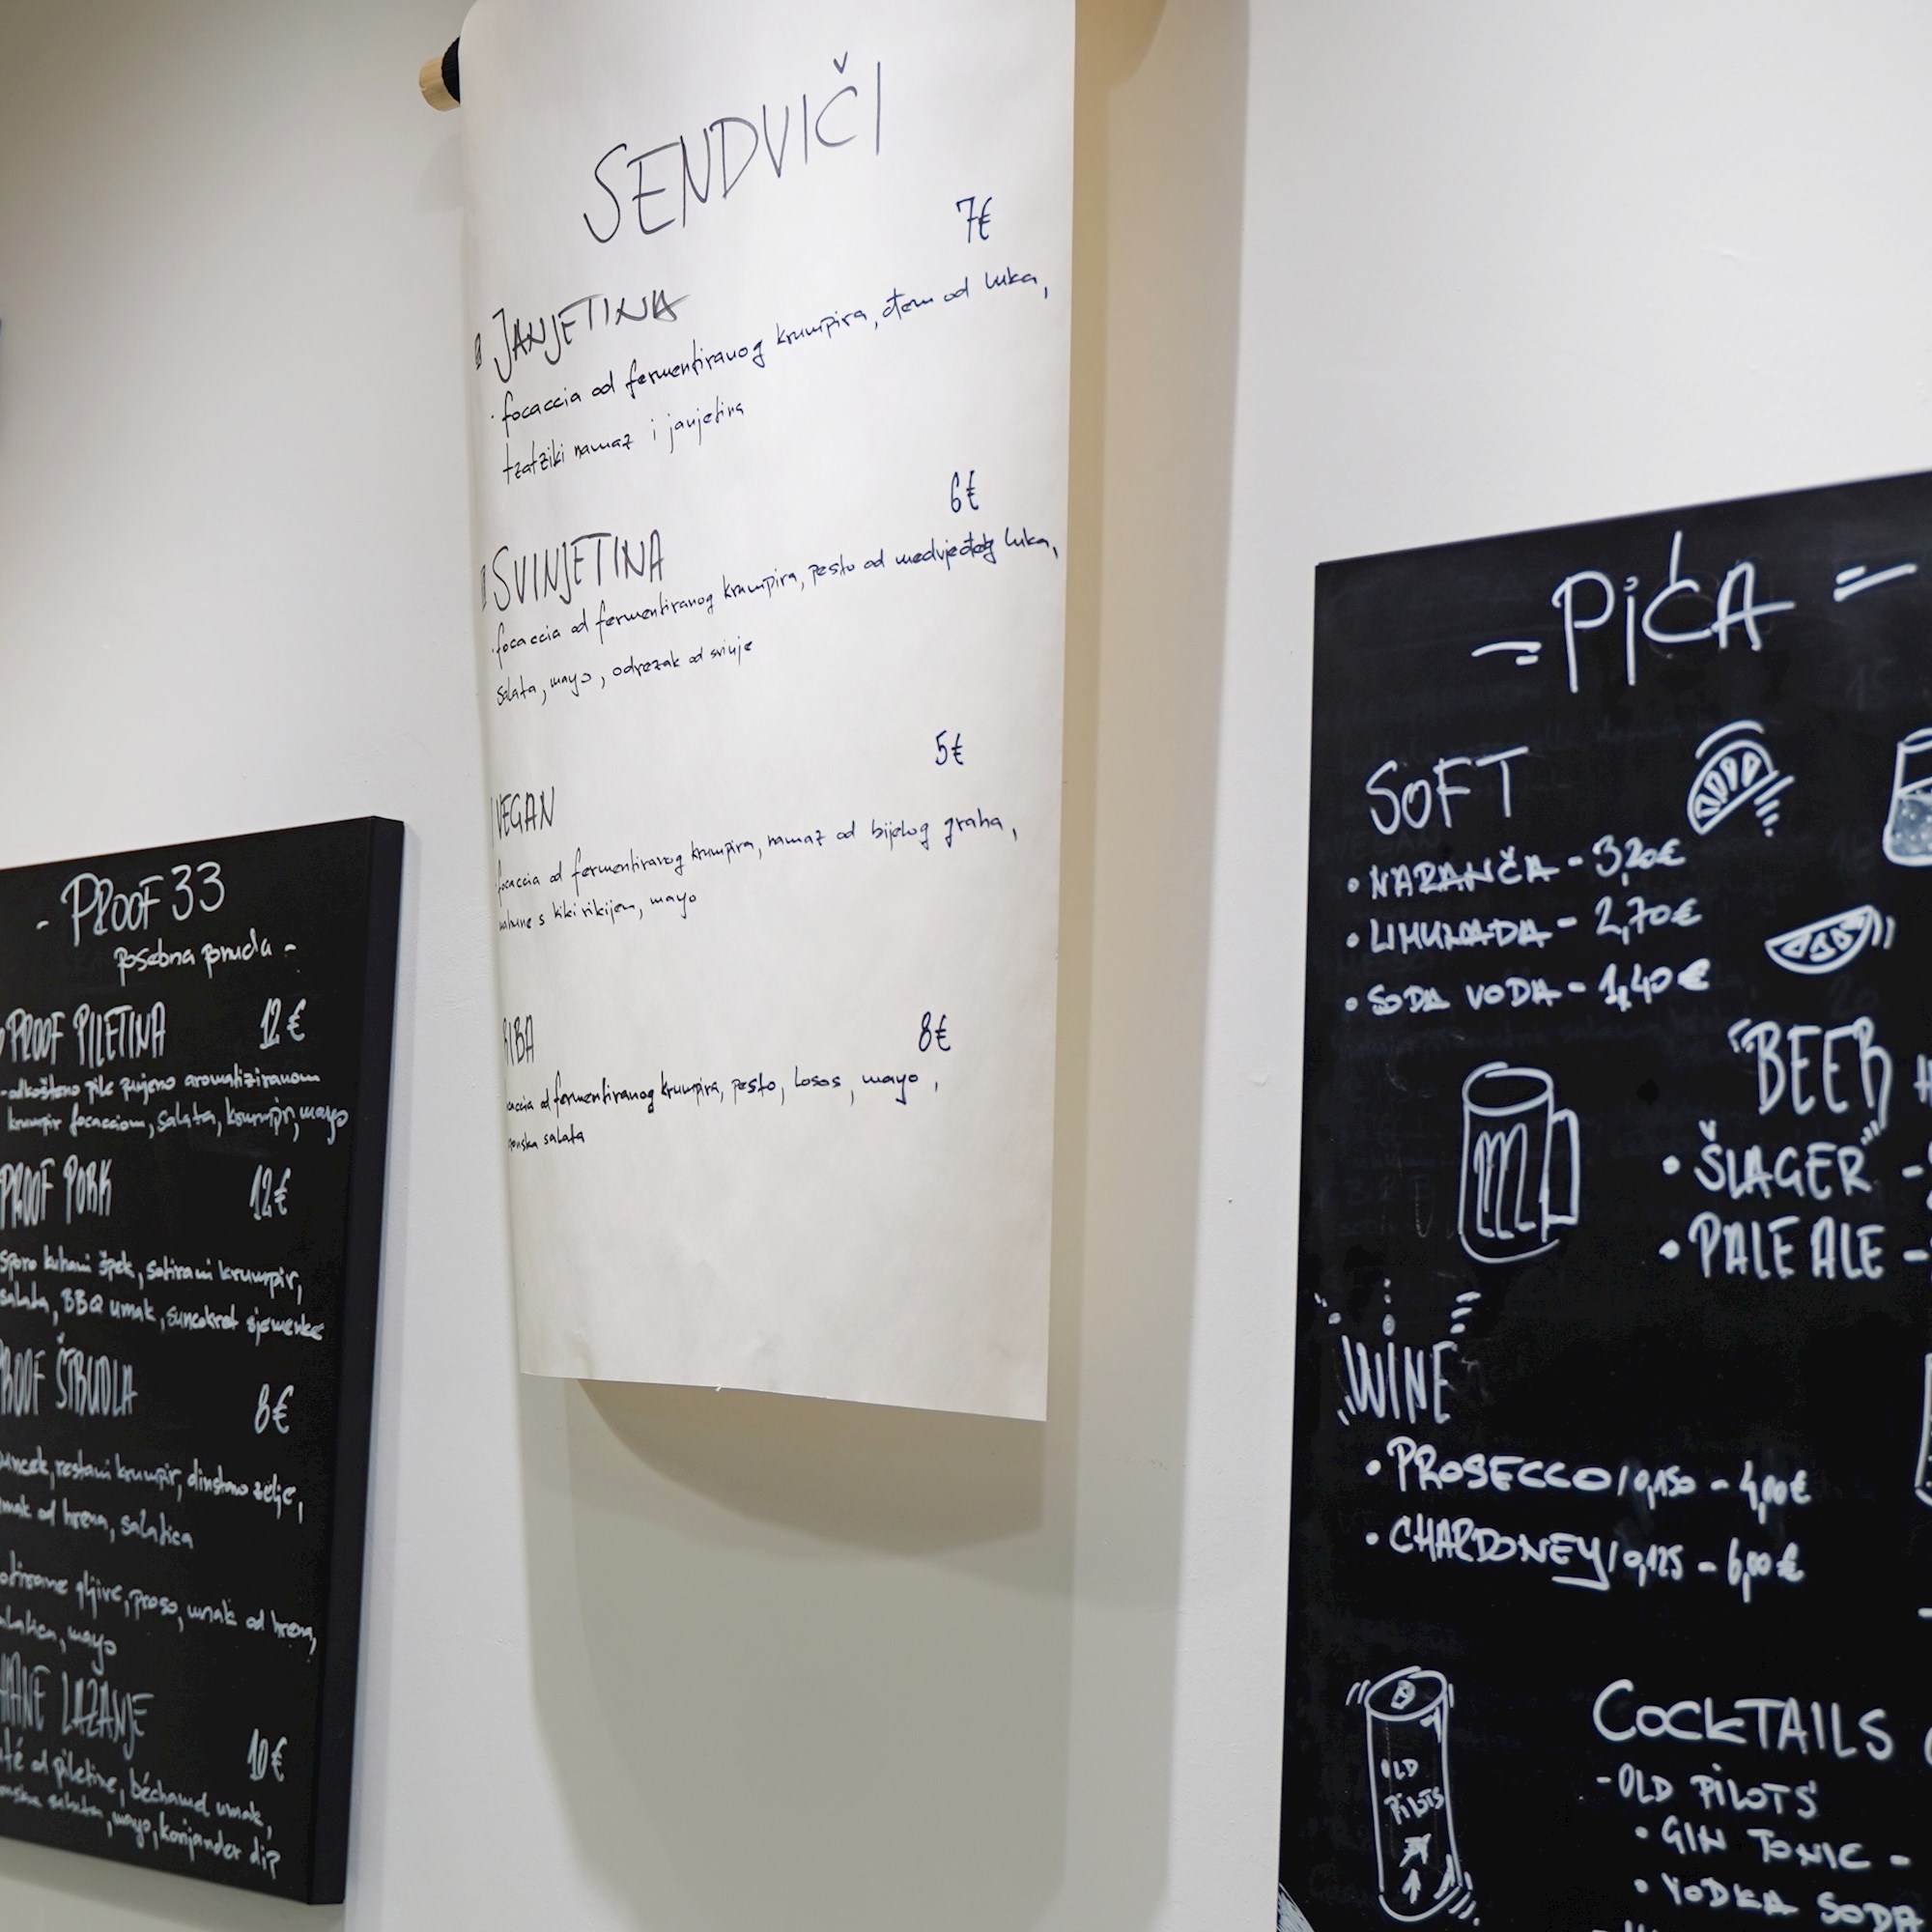 SENDVIČI
7€
JANJETINA
· focaccia od fermentiranog krumpira, đem od luka,
tzatziki namaz i janjetina
6€
SVINJETINA
·focaccia od fermentiranog krumpira, pesto od medvjeđeg luka,
salata, mayo, odrezak od svinje
5€
VEGAN
focaccia od fermentiranog krumpira, namaz od bijelog graha,
s kikirikijem, mayo
RIBA 8€
od fermentiranog krumpira, pesto, losos, mayo,
salata
- PROOF 33
posebna ponuda -
PROOF PILETINA 12€
-odkošteno pile punjeno aromatiziranom
krumpir focacciom, salata, krumpir, mayo
PROOF PORK 12€
sporo kuhani špek, sotirani krumpir,
salata, BBQ umak, suncokret sjemenke
PROOF ŠTRUDLA
8€
buncek, restani krumpir, dinstano zelje,
umak od hrena, salatica
gljive, proso, umak od hrena,
salatica, mayo
LAZANJE
10€
od piletine, béchamel umak,
salata, mayo, korijander dip
= PIĆA =
SOFT
• NARANČA - 3,20€
• LIMUNADA - 2,70€
• SODA VODA - 1,40€
"BEER"
• ŠLAGER -
• PALE ALE -
WINE
• PROSECCO/0,150 - 4,00€
• CHARDONEY/0,125 - 6,00€
OLD
PILOTS
COCKTAILS
-OLD PILOTS'
• GIN TONIC -
• VODKA SODA